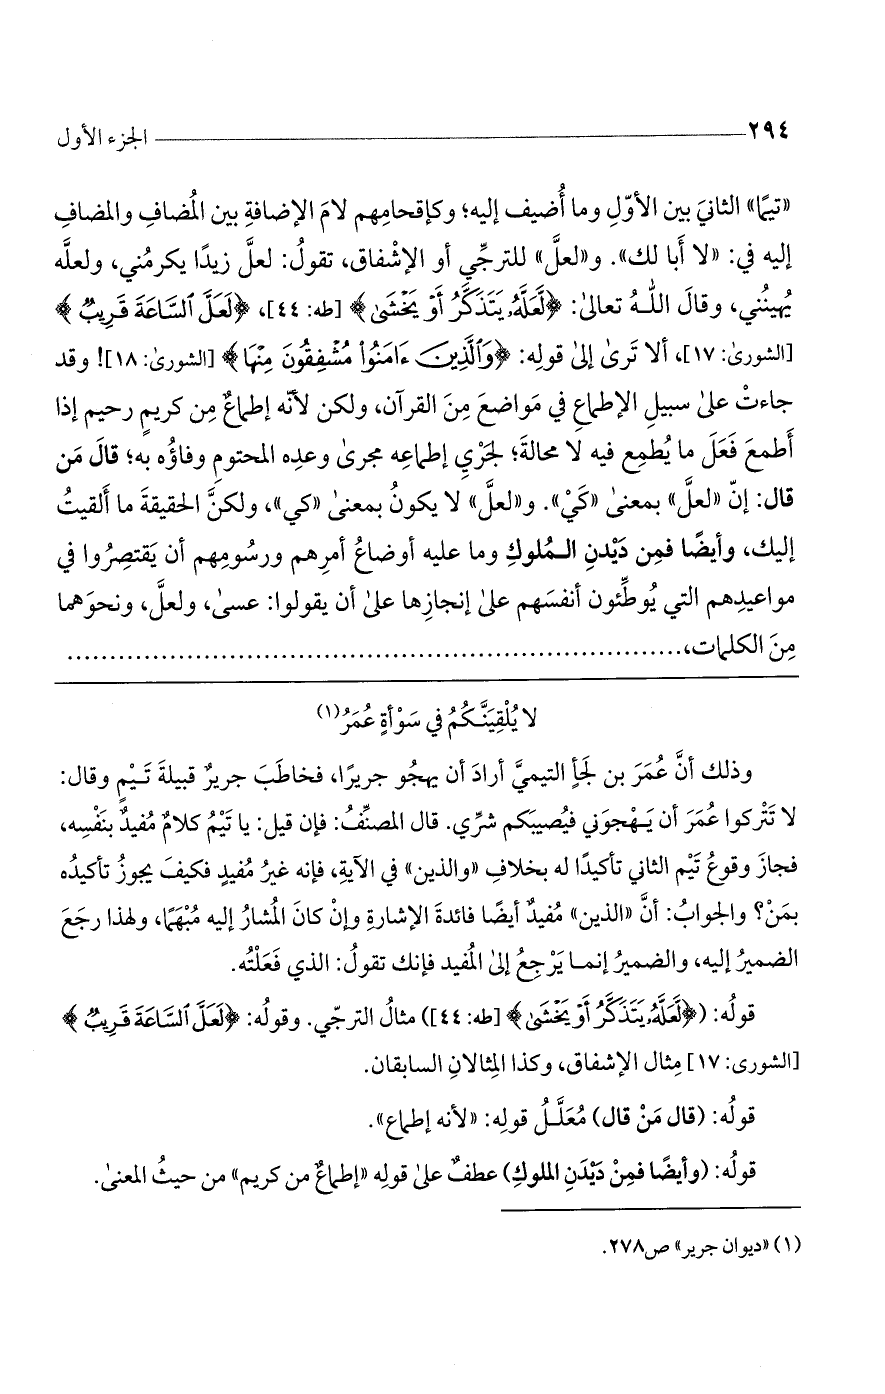 ٢٩٤ الجزء الأول
«تيمًا» الثانيَ بين الأوّلِ وما أُضيف إليه؛ وكإقحامِهم لامَ الإضافةِ بين المُضافِ والمضافِ
إليه في: «لا أبا لك». و«لعلَّ» للترجِّي أو الإشْفاق، تقولُ: لعلَّ زيدًا يكرمُني، ولعله
يُهينُني، وقالَ اللهُ تعالىٰ: ﴿لَّعَلَّهُۥ يَتَذَكَّرُ أَوْ يَخْشَىٰ﴾ [طه: ٤٤]، ﴿لَعَلَّ ٱلسَّاعَةَ قَرِيبٌ﴾
[الشورىٰ: ١٧]، ألا تَرىٰ إلىٰ قولِه: ﴿وَٱلَّذِينَ ءَامَنُواْ مُشْفِقُونَ مِنْهَا﴾ [الشورىٰ: ١٨]! وقد
جاءتْ علىٰ سبيلِ الإطماعِ في مَواضعَ مِنَ القرآن، ولكن لأنّه إطماعٌ مِن كريمٍ رحيم إذا
أَطمعَ فَعَلَ ما يُطمِع فيه لا محالةَ؛ لجَرْيِ إطماعِه مجرىٰ وعدِه المحتومِ وفاؤُه به؛ قالَ مَن
قال: إنّ «لعلَّ» بمعنىٰ «كَيْ». و«لعلَّ» لا يكونُ بمعنىٰ «كي»، ولكنَّ الحقيقةَ ما أَلقيتُ
إليك، وأيضًا فمِن دَيْدنِ الـمُلوكِ وما عليه أوضاعُ أمرِهم ورسُومِهم أن يَقتصِرُوا في
مواعيدِهم التي يُوطِّئون أنفسَهم علىٰ إنجازِها علىٰ أن يقولوا: عسىٰ، ولعلَّ، ونحوَهما
مِنَ الكلمات،......................................................................
لا يُلْقِيَنَّـكُمُ في سَوْأةٍ عُمَرُ(١)
وذلك أنَّ عُمَرَ بن لَجَأٍ التيميَّ أرادَ أن يهجُو جريرًا، فخاطَبَ جريرٌ قبيلةَ تَـيْمٍ وقال:
لا تَتْركوا عُمَرَ أن يَـهْجوَني فيُصيبَكم شرِّي. قال المصنِّفُ: فإن قيل: يا تَيْمُ كلامٌ مُفيدٌ بنَفْسِه،
فجازَ وقوعُ تَيْم الثاني تأكيدًا له بخلافِ «والذين» في الآيةِ، فإنه غيرُ مُفيدٍ فكيفَ يجوزُ تأكيدُه
بمَنْ؟ والجوابُ: أنَّ «الذين» مُفيدٌ أيضًا فائدةَ الإشارةِ وإنْ كانَ المُشارُ إليه مُبْهَمًا، ولهذا رجَعَ
الضميرُ إليه، والضميرُ إنمـا يَرْجِعُ إلىٰ المُفيد فإنك تقولُ: الذي فَعَلْتُه.
قولُه: (﴿لَّعَلَّهُۥ يَتَذَكَّرُ أَوْ يَخْشَىٰ﴾ [طه: ٤٤]) مثالُ الترجّي. وقولُه: ﴿لَعَلَّ ٱلسَّاعَةَ قَرِيبٌ﴾
[الشورى: ١٧] مِثال الإشفاق، وكذا المِثالانِ السابقان.
قولُه: (قال مَنْ قال) مُعَلَّـلُ قولِه: «لأنه إطماع».
قولُه: (وأيضًا فمِنْ دَيْدَنِ الملوكِ) عطفٌ علىٰ قولِه «إطماعٌ من كريم» من حيثُ المعنىٰ.
(١) «ديوان جرير» ص٢٧٨.